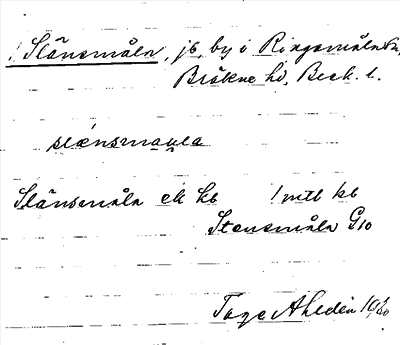 Slänsmåla, jb, by i Ringamåla sn,
Bräkne hd, Blek. l.
slænsmaula
Slänsmåla ek kb 1 mtl kb
Stensmåla G10
Tage Ahldén 1930